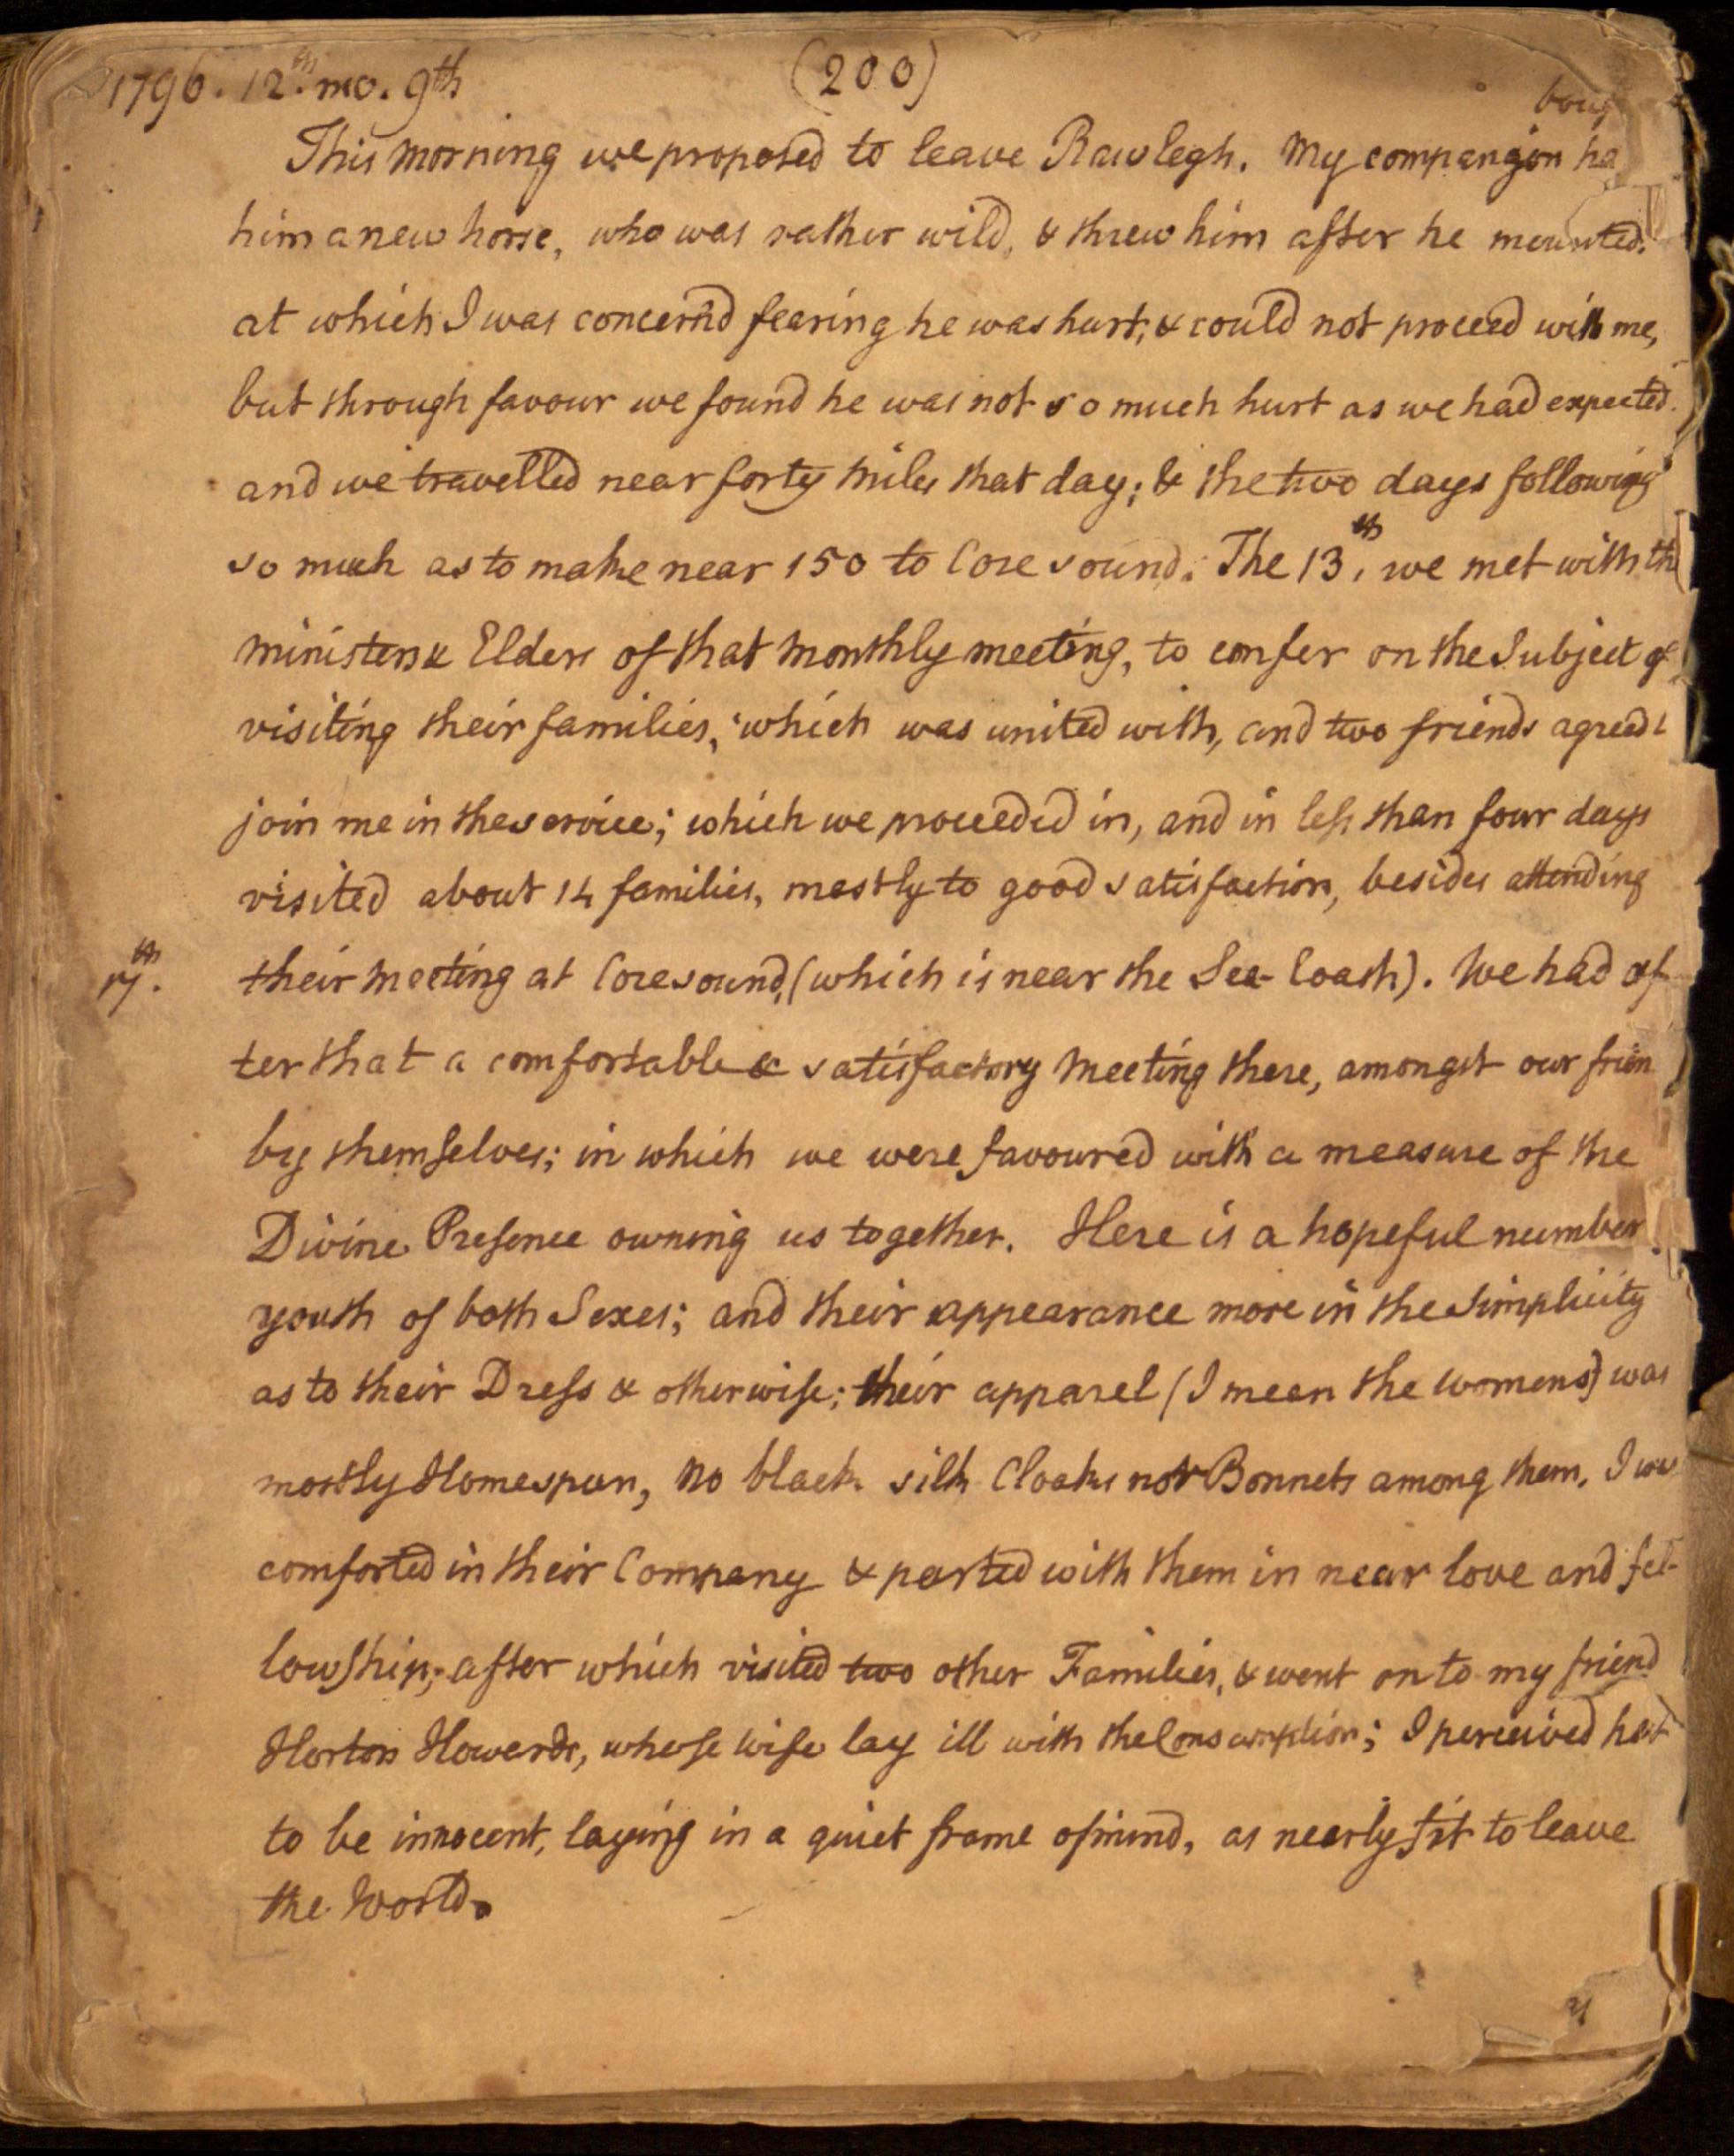 1796. 12th. mo. 9th
(200)
boug
This morning we proposed to leave Rawlegh. My companion ha
him a new horse, who was rather wild, & threw him after he mounted.
at which I was concern'd fearing he was hurt; & could not proceed with me,
but through favour we found he was not so much hurt as we had expected.
and we travelled near forty miles that day; & the two days following
so much as to make near 150 to Core sound. The 13th, we met with th
ministers & Elders of that Monthly meeting, to confer on the Subject of
visiting their families, which was united with, and two friends agreed t
join me in the service; which we proceeded in, and in less than four days
visited about 14 families, mostly to good satisfaction, besides attending
17th.
their meeting at Coresound, (which is near the Sea-Coast). We had af
ter that a comfortable & satisfactory Meeting there, amongst our frien
by themselves; in which we were favoured with a measure of the
Divine Presence owning us together. Here is a hopeful number
youth of both Sexes; and their appearance more in the Simplicity
as to their Dress & otherwise; their apparel (I mean the womens) was
mostly Homespun, no black silk Cloaks nor Bonnets among them. I wa
comforted in their Company & parted with them in near love and fel-
lowship; after which visited two other Families, & went on to my friend
Horton Howards, whose wife lay ill with the Consumption; I perceived her
to be innocent, laying in a quiet frame of mind, as nearly fit to leave
the World.